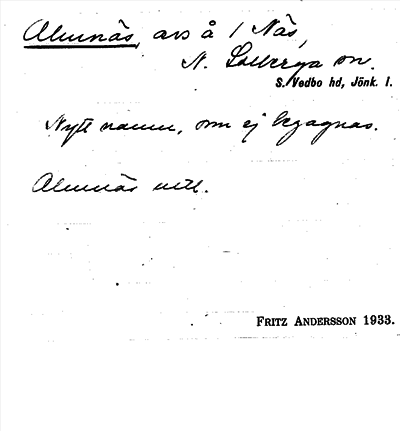 Almnäs, avs å 1 Näs,
N. Solberga sn.
S. Vedbo hd, Jönk. l.
Nytt namn, som ej begagnas.
Almnäs utl.
FRITZ ANDERSSON 1933.